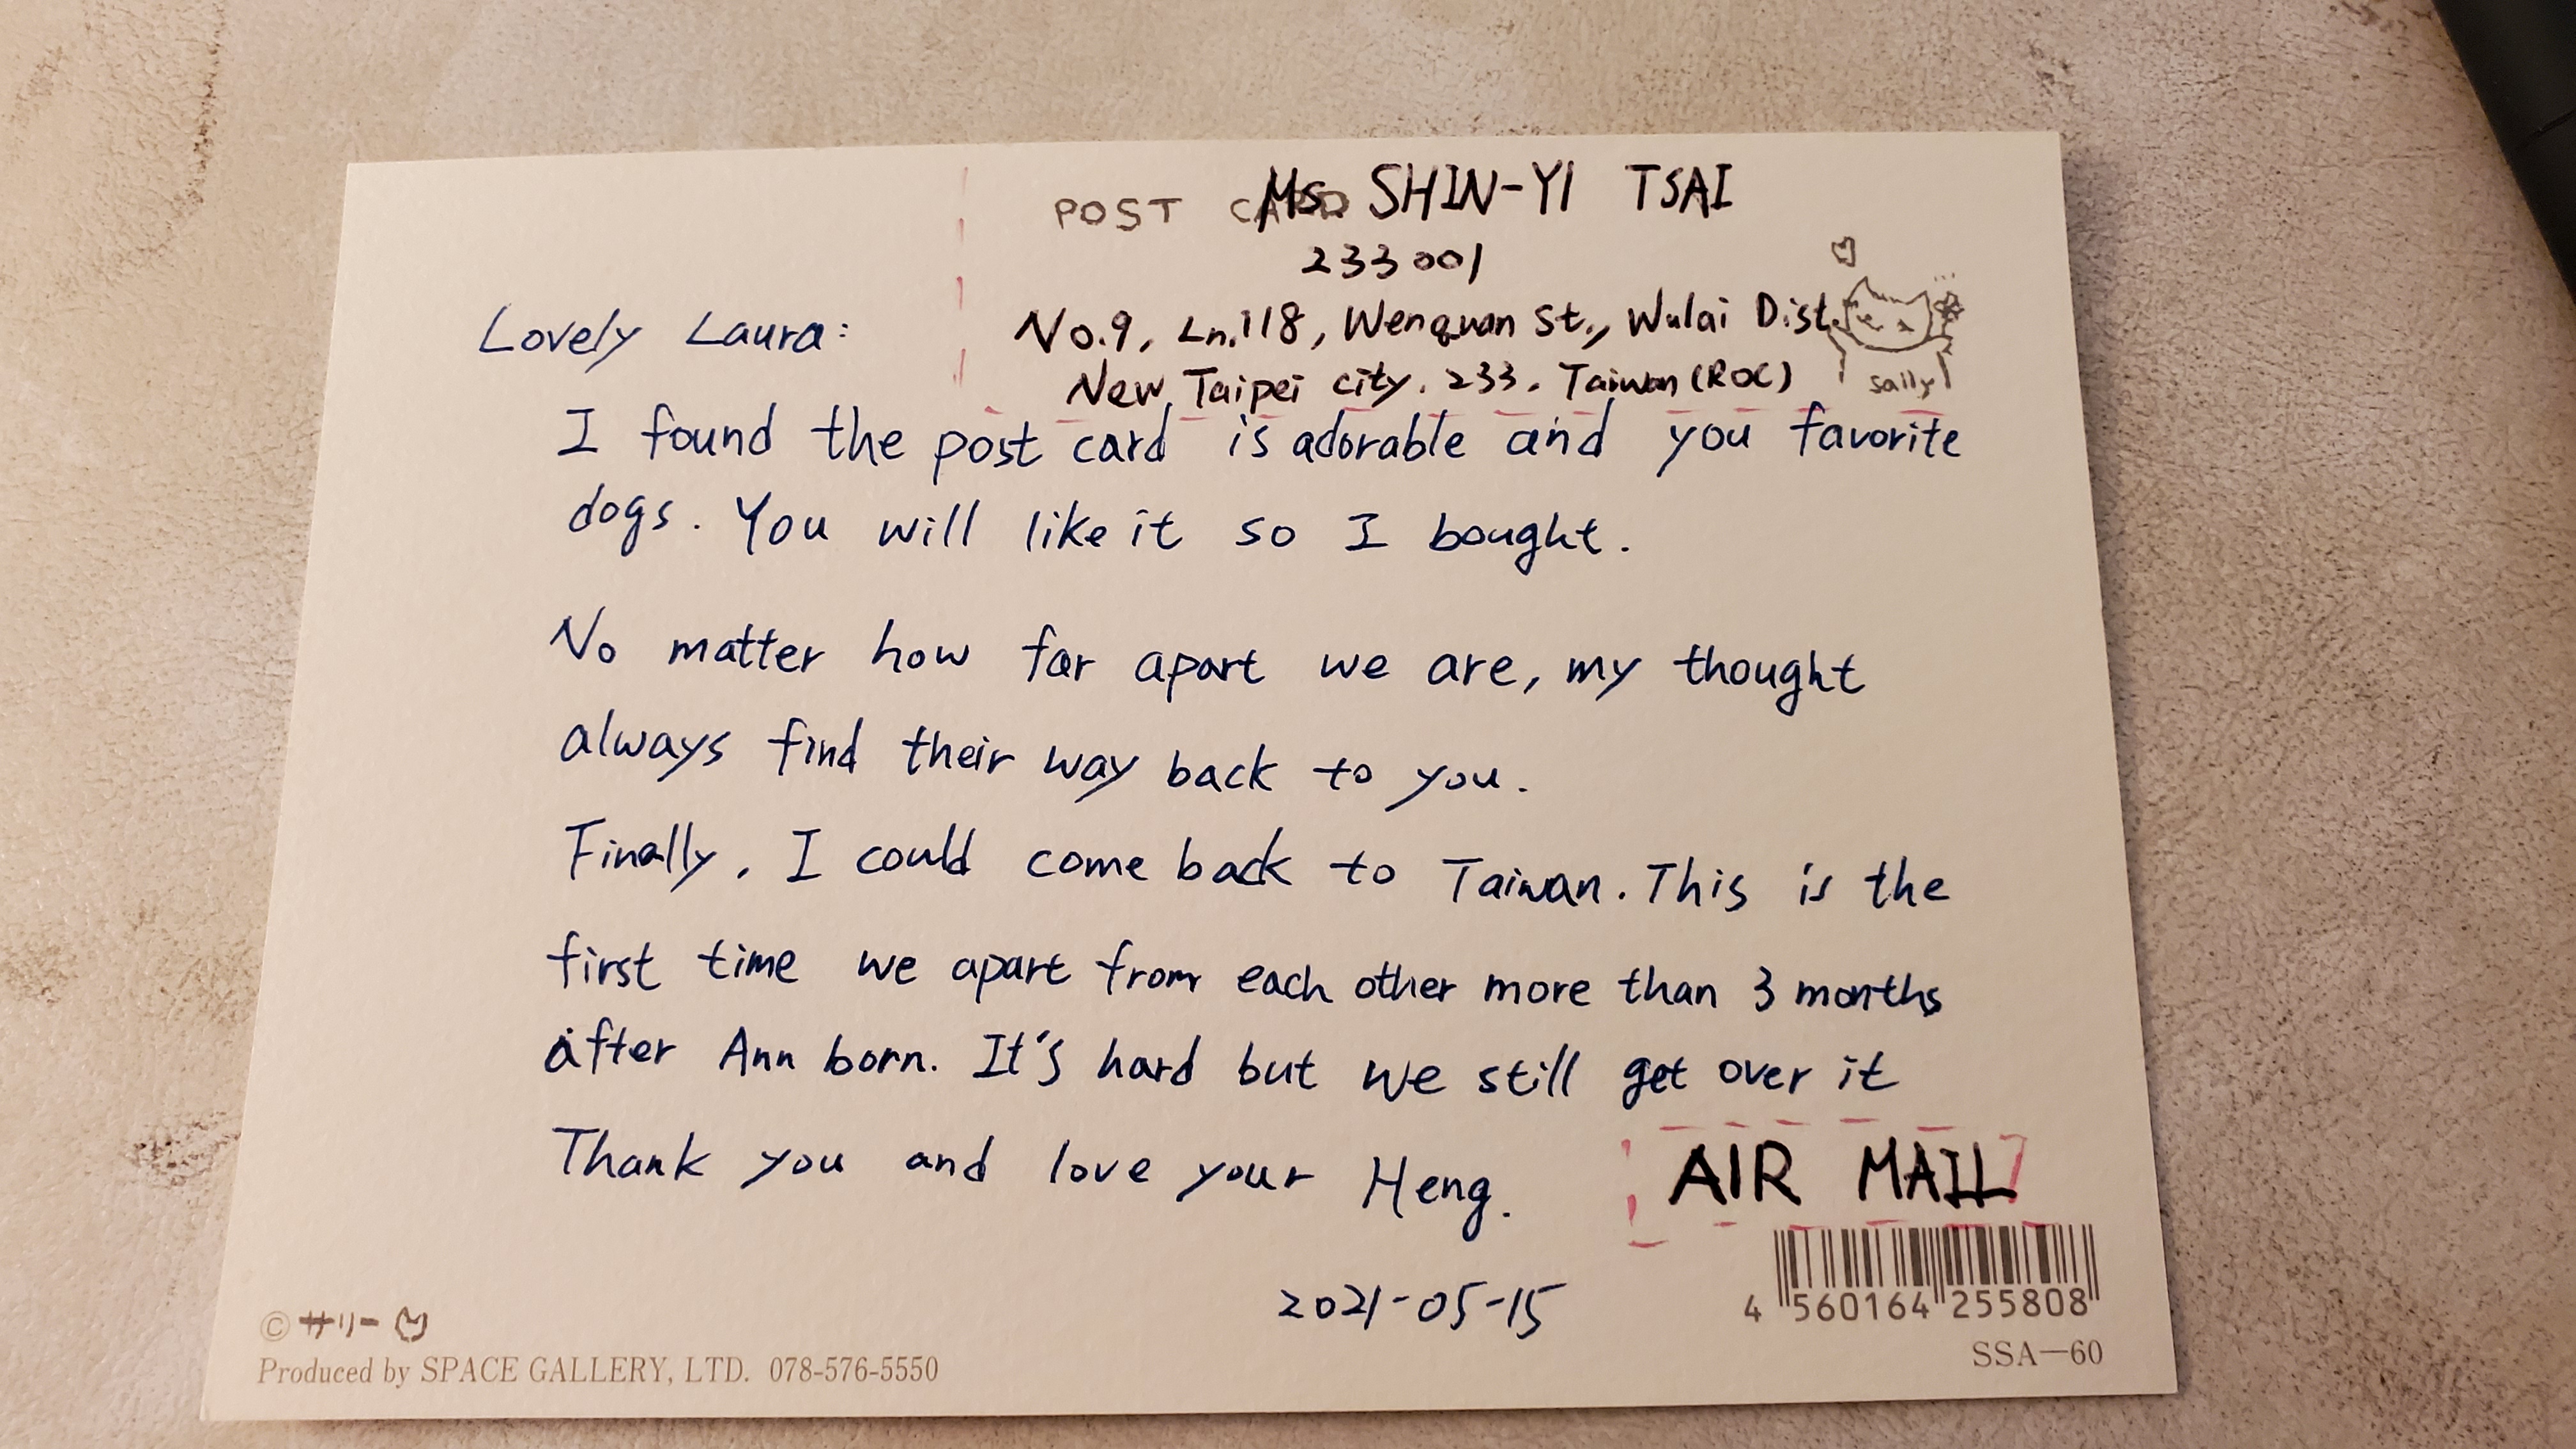 POST CARD
Ms. SHIN-YI TSAI
233001
No.9, Ln.118, Wenquan St., Wulai Dist.,
New Taipei city. 233. Taiwan (ROC)
sally
Lovely Laura:
I found the post card is adorable and you favorite
dogs. You will like it so I bought.
No matter how far apart we are, my thought
always find their way back to you.
Finally, I could come back to Taiwan. This is the
first time we apart from each other more than 3 months
after Ann born. It's hard but we still get over it
Thank you and love your Heng.
2021-05-15
AIR MAIL
© サリー
Produced by SPACE GALLERY, LTD. 078-576-5550
4 560164 255808
SSA—60